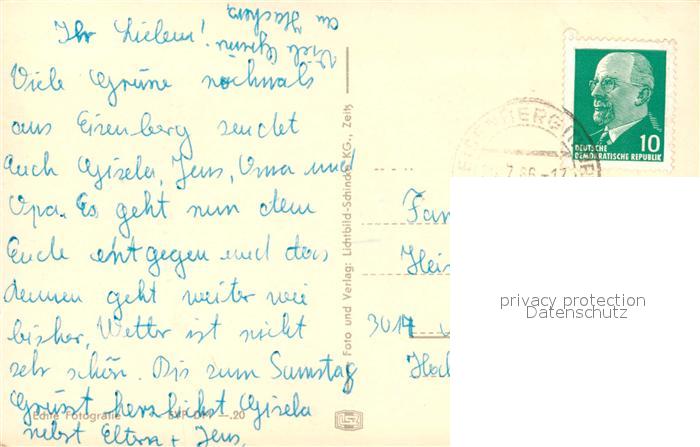 Ihr Lieben!
Viele Grüsse nochmals
aus Eisenberg sendet
Euch Gisela, Jens, Oma und
Opa. Es geht nun dem
Ende entgegen und das
geht weiter wie
bisher. Wetter ist nicht
sehr schön. Bis zum Samstag
Grüsst herzlichst Gisela
nebst Eltern + Jens.
Viele Grüsse
an
Echte Fotografie EVP DM —.20
Foto und Verlag: Lichtbild-Schincke KG., Zeitz
EISENBERG (THÜR
7.66-17
10
DEUTSCHE
DEMOKRATISCHE REPUBLIK
Fam
3014
privacy protection
Datenschutz